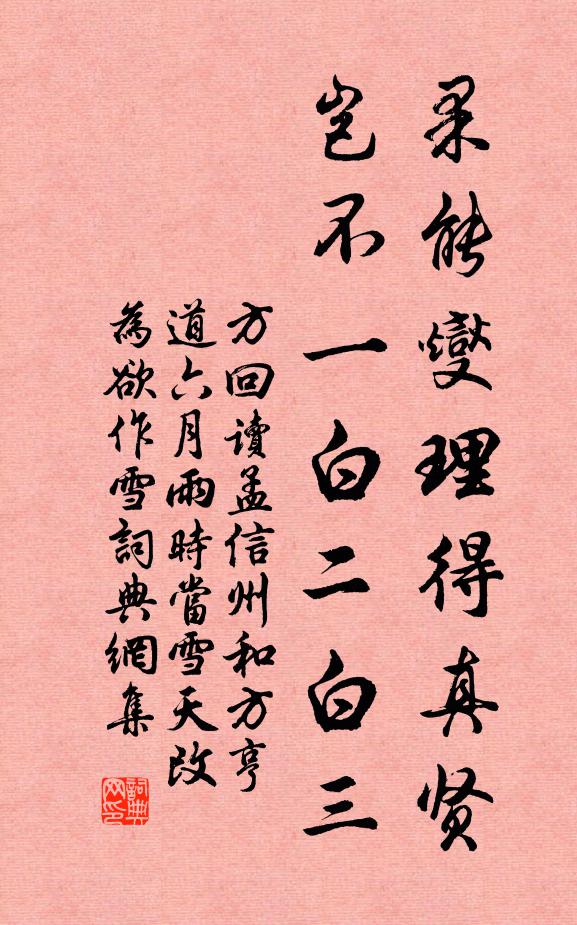 果能燮理得真贤
岂不一白二白三
方回读孟信州和方亨
道六月雨時當雪天改
為欲作雪詞典網集
詞典网印